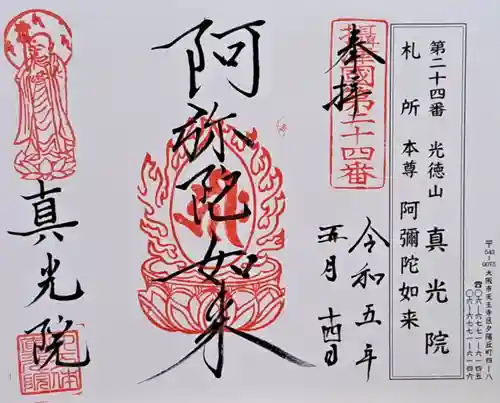 奉拝
攝國第二十四番
令和五年
五月十四日
阿弥陀如来
真光院
第二十四番 光徳山 真光院
札所本尊 阿彌陀如来
〒543-0075 大阪市天王寺区夕陽丘町四-八
☎〇六-六七七一-六一四五
〇六-六七七一-六一四六